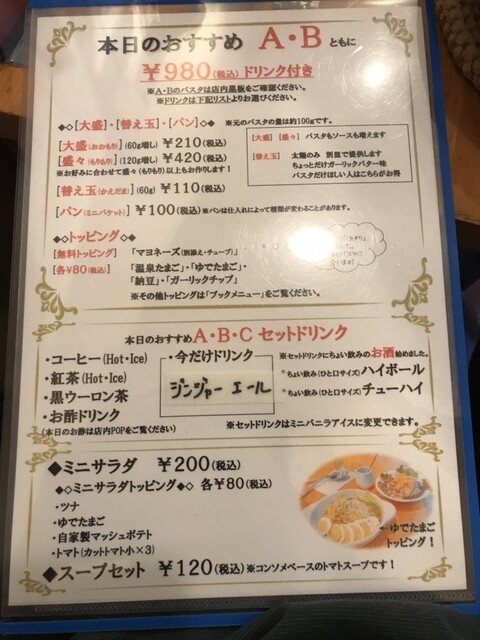 本日のおすすめ A・B ともに
¥980(税込)ドリンク付き
※A・Bのパスタは店内黒板をご確認ください。
※ドリンクは下記リストよりお選びください。
◆◇[大盛]・[替え玉]・[パン]◇◆ ※元のパスタの量は約100gです。
[大盛(おおもり)](60g増し) ¥210(税込)
[盛々(もりもり)](120g増し) ¥420(税込)
※お好みに合わせて盛々(もりもり)以上もお作りします!
[替え玉(かえだま)](60g) ¥110(税込)
[大盛] [盛々] パスタもソースも増えます
[替え玉] 太麺のみ 別皿で提供します
ちょっとだけガーリックバター味
パスタだけほしい人はこちらがお得
[パン(ミニバケット)] ¥100(税込)※パンは仕入れによって種類が変わることがあります。
◆◇トッピング◇◆
[無料トッピング] 「マヨネーズ(別添え・チューブ)」
[各¥80(税込)] 「温泉たまご」・「ゆでたまご」・
「納豆」・「ガーリックチップ」
※その他トッピングは「ブックメニュー」をご覧ください。
本日のおすすめA・B・Cセットドリンク
・コーヒー(Hot・Ice)
・紅茶(Hot・Ice)
・黒ウーロン茶
・お酢ドリンク
(本日のお酢は店内POPをご覧ください)
・今だけドリンク
ジンジャーエール
※セットドリンクにちょい飲みのお酒始めました。
*ちょい飲み(ひと口サイズ)ハイボール
*ちょい飲み(ひと口サイズ)チューハイ
※セットドリンクはミニバニラアイスに変更できます。
◆ミニサラダ ¥200(税込)
◆◇ミニサラダトッピング◆◇ 各¥80(税込)
・ツナ
・ゆでたまご
・自家製マッシュポテト
・トマト(カットトマト小×3)
←ゆでたまご
トッピング!
◆スープセット ¥120(税込)※コンソメベースのトマトスープです!